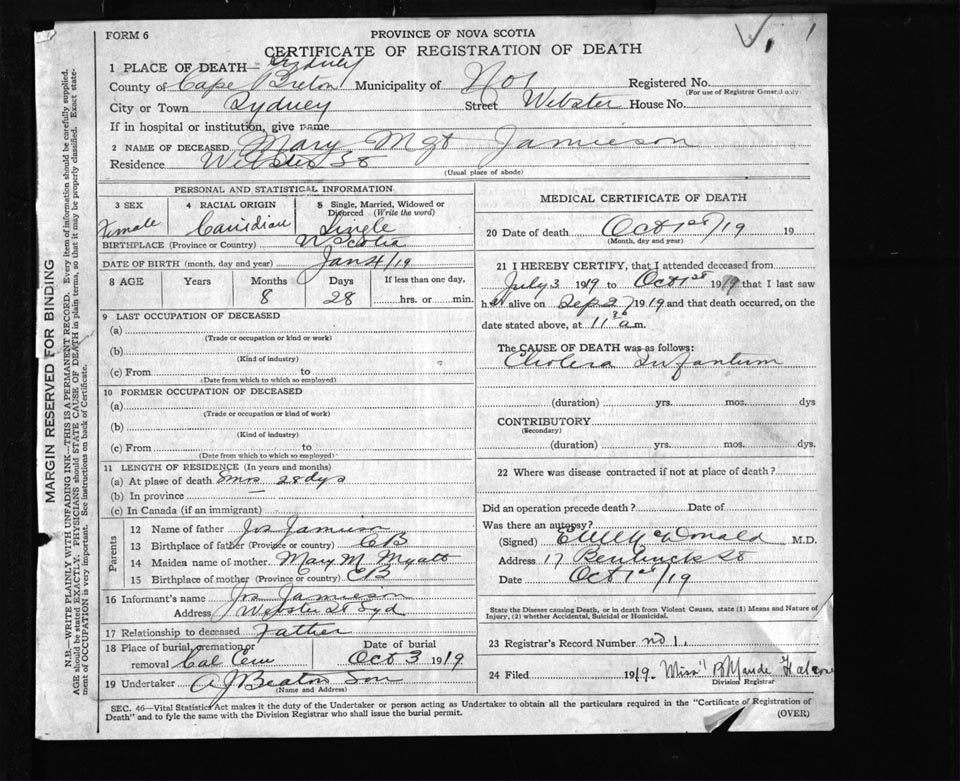 FORM 6
PROVINCE OF NOVA SCOTIA
V. 1
CERTIFICATE OF REGISTRATION OF DEATH
1 PLACE OF DEATH— Sydney
County of Cape Breton Municipality of No 1 Registered No.
(For use of Registrar General only.)
City or Town Sydney Street Webster House No.
If in hospital or institution, give name
2 NAME OF DECEASED Mary Mgt Jamieson
Residence Webster St
(Usual place of abode)
PERSONAL AND STATISTICAL INFORMATION
3 SEX 4 RACIAL ORIGIN 5 Single, Married, Widowed or Divorced (Write the word)
Female Canidian Single
BIRTHPLACE (Province or Country) N Scotia
DATE OF BIRTH (month, day and year) Jan 4/19
8 AGE Years Months Days If less than one day,
8 28 hrs. or min.
9 LAST OCCUPATION OF DECEASED
(a)
(Trade or occupation or kind or work)
(b)
(Kind of industry)
(c) From to
(Date from which to which so employed)
10 FORMER OCCUPATION OF DECEASED
(a)
(Trade or occupation or kind of work)
(b)
(Kind of industry)
(c) From to
(Date from which to which so employed)
11 LENGTH OF RESIDENCE (In years and months)
(a) At place of death 8mos 28dys
(b) In province —
(c) In Canada (if an immigrant)
Parents
12 Name of father Jos Jamieson
13 Birthplace of father (Province or country) CB
14 Maiden name of mother Mary M. Myatt
15 Birthplace of mother (Province or country) CB
16 Informant's name Jos Jamieson
Address Webster St Syd
17 Relationship to deceased Father
18 Place of burial, cremation or removal Cal Cem
Date of burial Oct 3 1919
19 Undertaker A J Beaton Son
(Name and Address)
MEDICAL CERTIFICATE OF DEATH
20 Date of death Oct 1st/19 19
(Month, day and year)
21 I HEREBY CERTIFY, that I attended deceased from
July 3 1919 to Oct 1st 1919 that I last saw
her alive on Sep 27 1919 and that death occurred, on the
date stated above, at 11 30 a.m.
The CAUSE OF DEATH was as follows:
Cholera Infantum
(duration) yrs. mos. dys
CONTRIBUTORY
(Secondary)
(duration) yrs. mos. dys.
22 Where was disease contracted if not at place of death?
Did an operation precede death? Date of
Was there an autopsy?
(Signed) McDonald M.D.
Address 17 St
Date Oct 1st/19
State the Disease causing Death, or in death from Violent Causes, state (1) Means and Nature of
Injury, (2) whether Accidental, Suicidal or Homicidal.
23 Registrar's Record Number no 1.
24 Filed 1919. Miss B Maude
Division Registrar
SEC. 46—Vital Statistics Act makes it the duty of the Undertaker or person acting as Undertaker to obtain all the particulars required in the "Certificate of Registration of
Death" and to fyle the same with the Division Registrar who shall issue the burial permit.
(OVER)
MARGIN RESERVED FOR BINDING
N.B.—WRITE PLAINLY WITH UNFADING INK—THIS IS A PERMANENT RECORD. Every item of information should be carefully supplied.
AGE should be stated EXACTLY. PHYSICIANS should STATE CAUSE OF DEATH in plain terms, so that it may be properly classified. Exact state-
ment of OCCUPATION is very important. See instructions on back of Certificate.